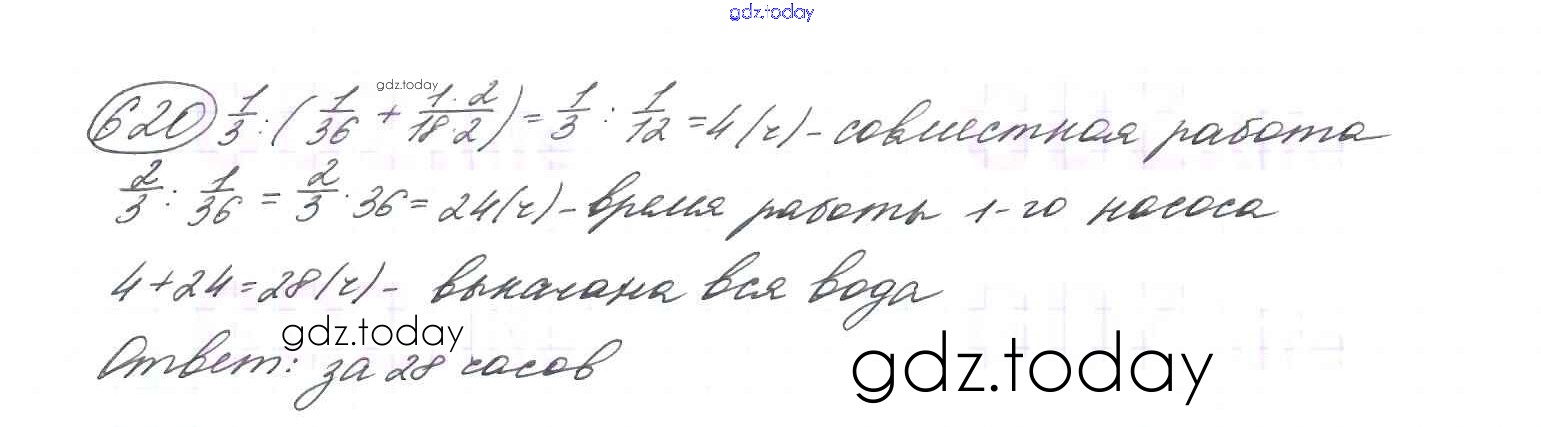 gdz.today
gdz.today
620 1/3 : (1/36 + 1·2/18·2) = 1/3 : 1/12 = 4 (ч) - совместная работа
2/3 : 1/36 = 2/3 · 36 = 24 (ч) - время работы 1-го насоса
4 + 24 = 28 (ч) - выкачана вся вода
gdz.today
Ответ: за 28 часов
gdz.today